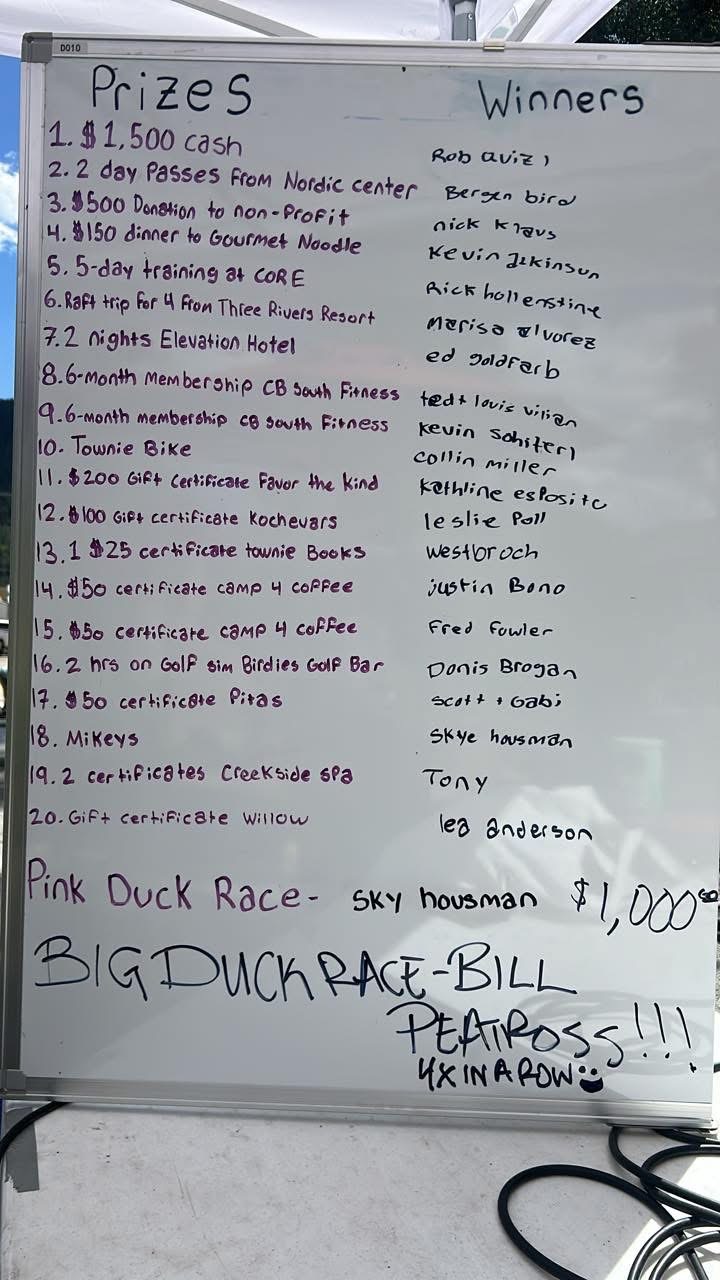 D010
Prizes Winners
1. $1,500 cash Rob aviz
2. 2 day Passes from Nordic center Bergen bird
3. $500 Donation to non-Profit nick Klaus
4. $150 dinner to Gourmet Noodle Kevin
5. 5-day training at CORE Rick hollenstine
6. Raft trip for 4 From Three Rivers Resort Marisa alvorez
7. 2 nights Elevation Hotel ed goldfarb
8. 6-month Membership CB South Fitness ted + louis
9. 6-month membership CB South Fitness Kevin
10. Townie Bike Collin miller
11. $200 Gift Certificate Favor the Kind Kathline esposito
12. $100 Gift certificate Kochevars leslie Poll
13. 1 $25 certificate townie Books Westbroch
14. $50 certificate camp 4 coffee justin Bono
15. $50 certificate camp 4 coffee Fred Fowler
16. 2 hrs on Golf sim Birdies Golf Bar Donis Brogan
17. $50 certificate Pitas Scott + Gabi
18. Mikeys Skye housman
19. 2 certificates Creekside spa Tony
20. Gift certificate Willow lea anderson
Pink Duck Race- Sky housman $1,000⁰⁰
BIG DUCK RACE-BILL
PEATROSS!!!
4X IN A ROW